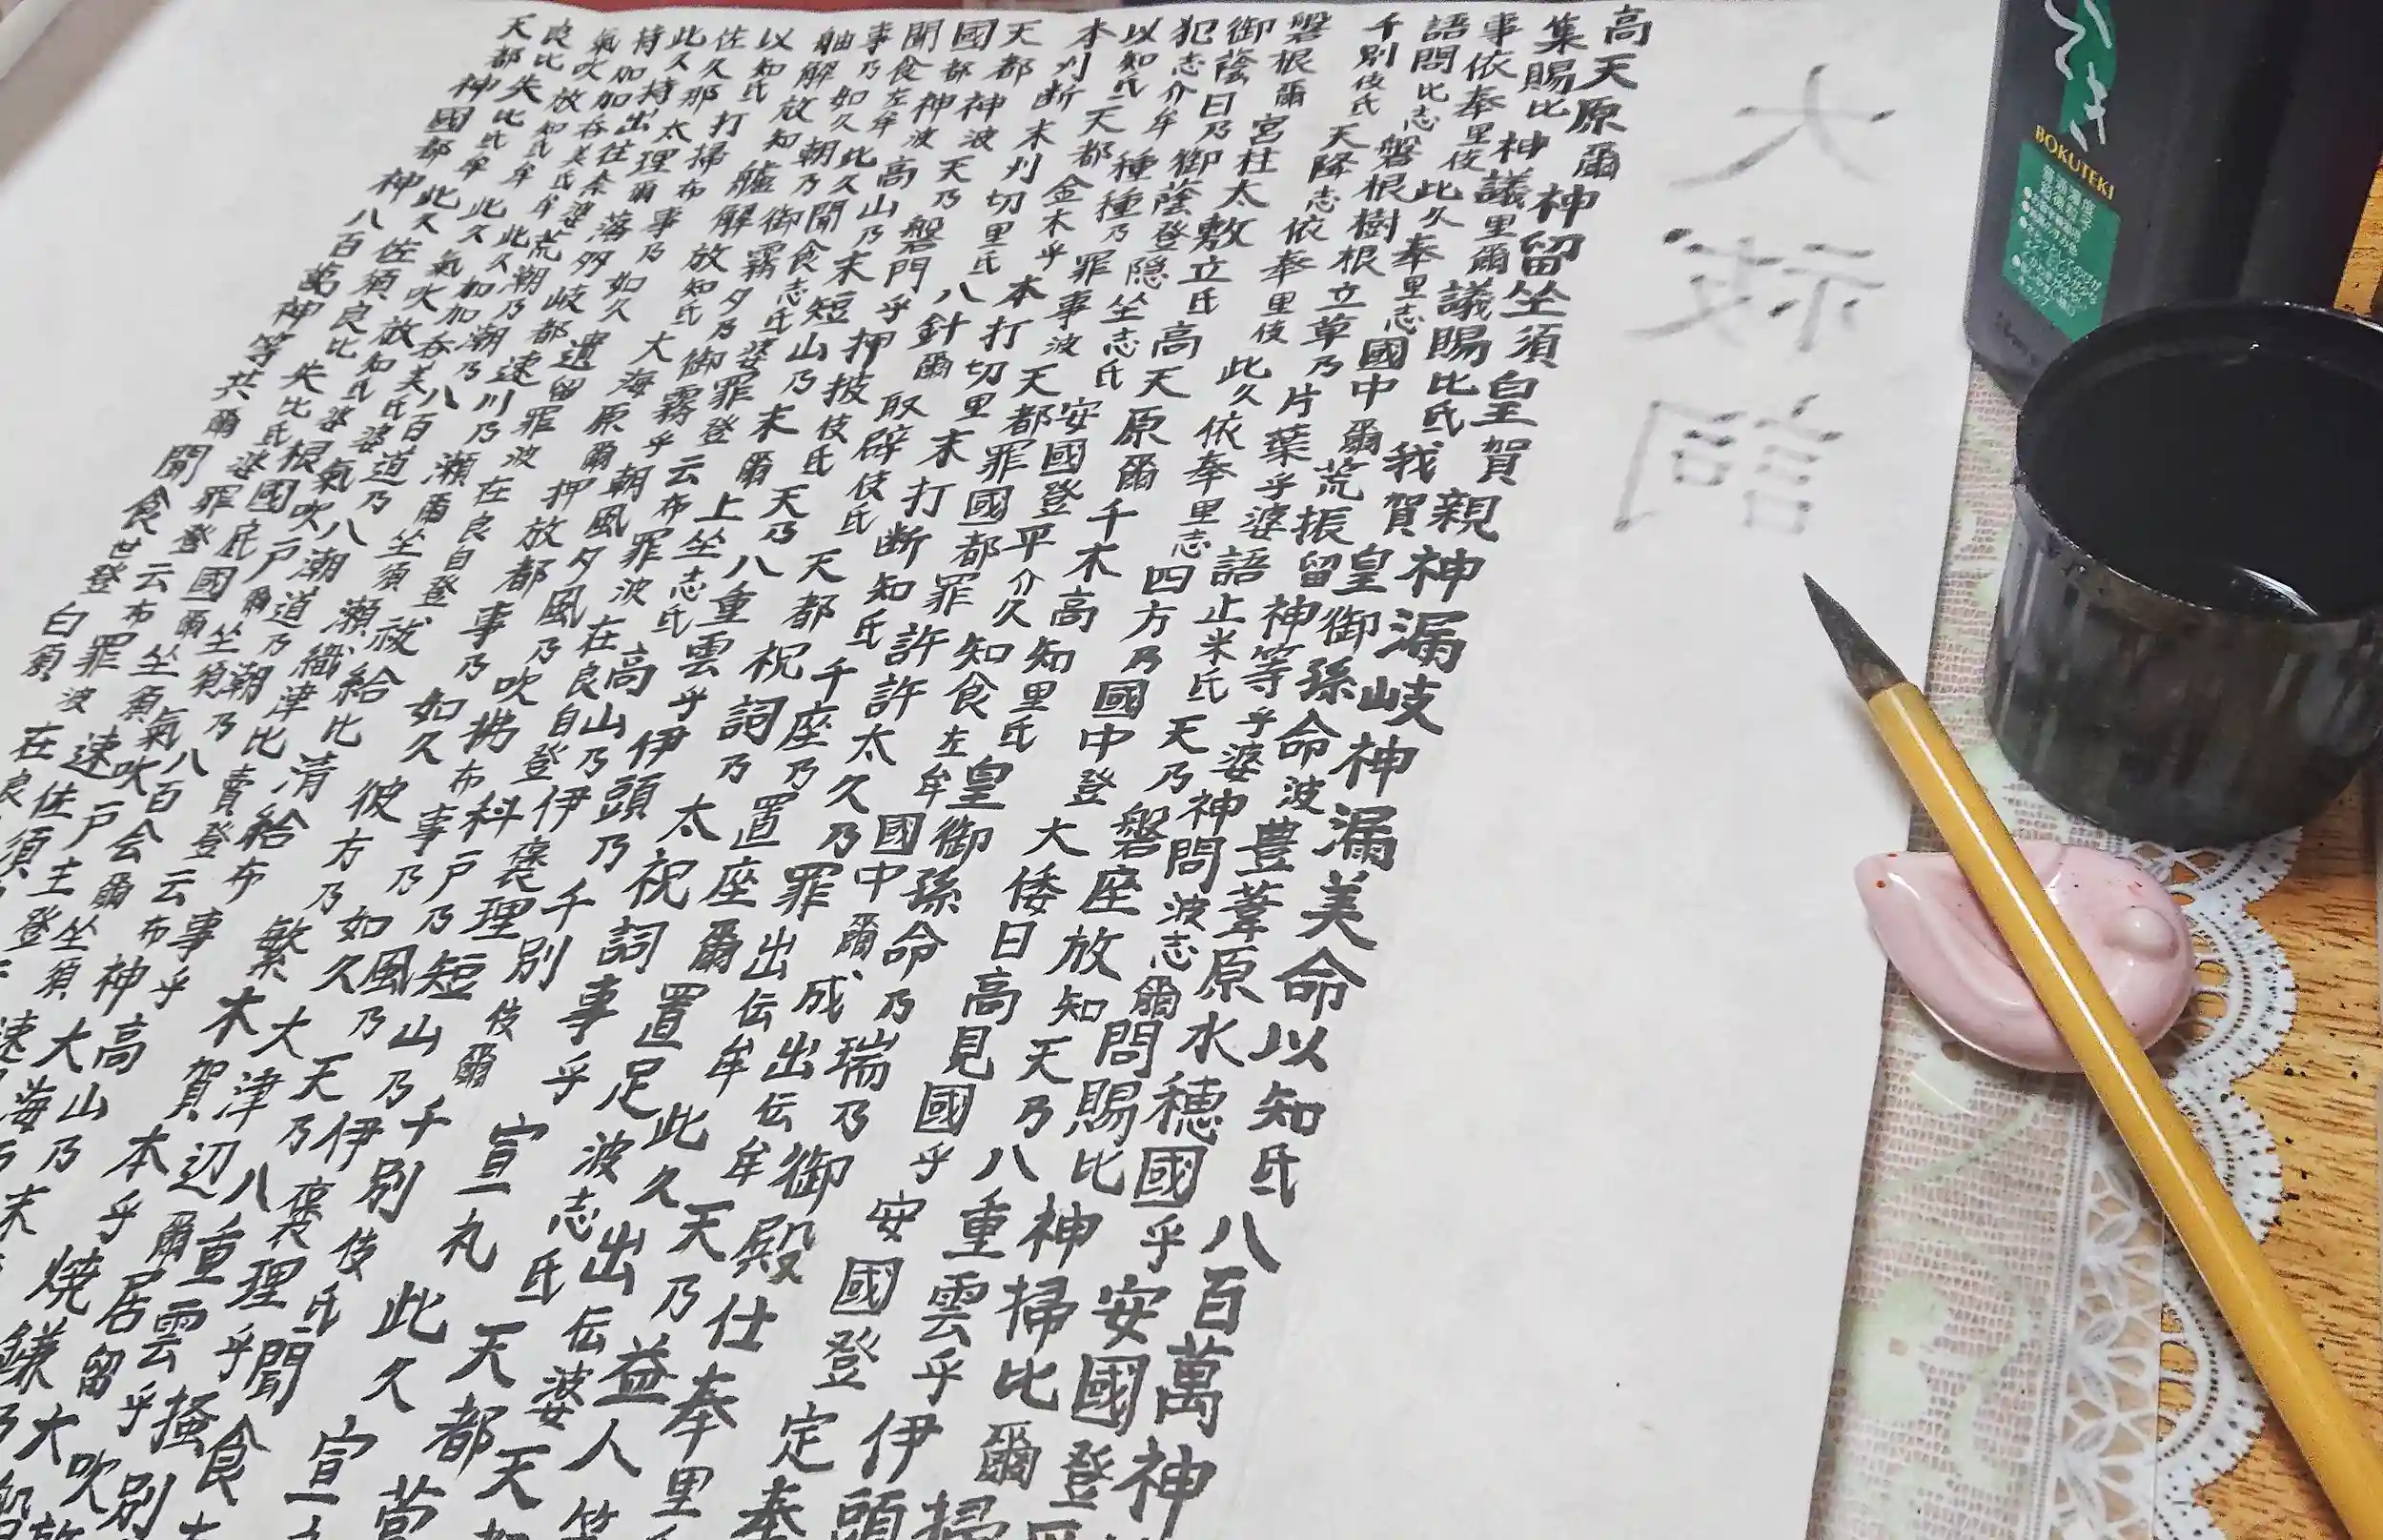 大祓詞
高天原爾神留坐須皇賀親神漏岐神漏美命以知氐八百萬神
集賜比神議里爾議賜比氐我賀皇御孫命波豊葦原水穂國乎安國登平
事依奉里伎此久奉里志國中爾荒振留神等乎婆神問波志爾問賜比神掃比爾掃
語問比志磐根樹根立草乃片葉乎婆語止米氐天乃磐座放知天乃八重雲乎伊頭
千別伎氐天降志依奉里伎此久依奉里志四方乃國中登大倭日高見國乎安國登定奉
磐根爾宮柱太敷立氐高天原爾千木高知里氐皇御孫命乃瑞乃御殿仕奉里
御蔭日乃御蔭登隠坐志氐安國登平介久知食左牟國中爾成出伝牟天乃益人等
犯志介牟種種乃罪事波天都罪國都罪許許太久乃罪出伝牟此久出伝婆天
以知氐天都金木乎本打切里末打断知氐千座乃置座爾置足波志氐天都菅
本刈断末刈切里氐八針爾取辟伎氐天都祝詞乃太祝詞事乎宣礼此久宣
天都神波天乃磐門乎押披伎氐天乃八重雲乎伊頭乃千別伎爾千別伎氐聞食
國都神波高山乃末短山乃末爾上坐志氐高山乃伊褒理短山乃伊褒理乎掻別
聞食左牟此久聞食志氐婆罪登云布罪波在良自登科戸乃風乃天乃八重雲乎吹
事乃如久朝乃御霧夕乃御霧乎朝風夕風乃吹拂布事乃如久大津辺爾居留大
舳解放知艫解放知氐大海原爾押放都事乃如久彼方乃繁木賀本乎焼鎌乃
以知氐打掃布事乃如久遺留罪波在良自登祓給比清給布事乎高山乃末
佐久那太理爾落多岐都速川乃瀬爾坐須瀬織津比賣登云布神大海
此久持出往奈婆荒潮乃潮乃八百道乃八潮道乃潮乃八百会爾坐須速
持加加呑美氐牟此久加加呑美氐婆氣吹戸爾坐須氣吹戸主登
氣吹放知氐牟此久氣吹放知氐婆根國底國爾坐須速佐須
良比失比氐牟此久佐須良比失比氐婆罪登云布罪波在良
天都神國都神八百萬神等共爾聞食世登白須
BOKUTEKI